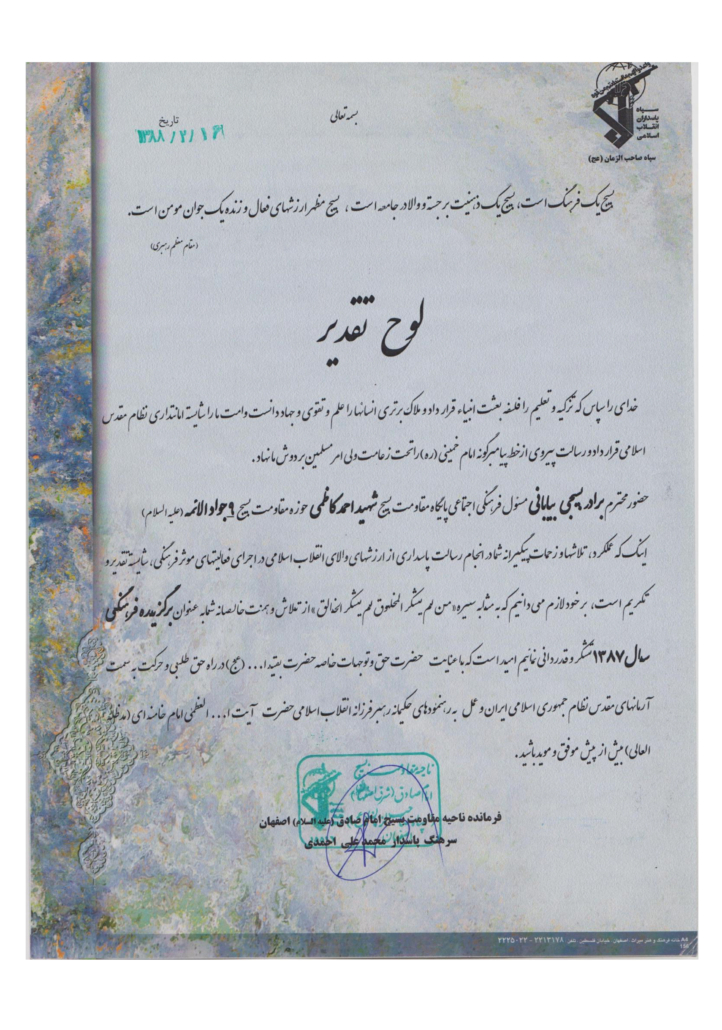 سپاه
پاسداران
انقلاب
اسلامی
سپاه صاحب الزمان (عج)
بسمه تعالی
تاریخ
بسیج یک فرهنگ است، بسیج یک ذهنیت برجسته و والا در جامعه است، بسیج مظهر ارزشهای فعال و زنده یک جوان مومن است.
(مقام معظم رهبری)
لوح تقدیر
خدای را سپاس که تزکیه و تعلیم را فلسفه بعثت انبیاء قرار داد و ملاک برتری انسانها را علم و تقوی و جهاد دانست و امت ما را شایسته امانتداری نظام مقدس
اسلامی قرار داد و رسالت پیروی از خط پیامبرگونه امام خمینی (ره) را تحت زعامت ولی امر مسلمین بر دوش ما نهاد.
حضور محترم برادر بسیجی بیابانی مسئول فرهنگی اجتماعی پایگاه مقاومت بسیج شهید احمد کاظمی حوزه مقاومت بسیج ۹ جواد الائمه (علیه السلام)
اینک که عملکرد، تلاشها و زحمات پیگیرانه شما در انجام رسالت پاسداری از ارزشهای والای انقلاب اسلامی در اجرای فعالیتهای موثر فرهنگی، شایسته تقدیر و
تکریم است، بر خود لازم می دانیم که به مثابه سیره «من لم یشکر المخلوق لم یشکر الخالق» از تلاش و همت خالصانه شما به عنوان برگزیده فرهنگی
سال ۱۳۸۷ تشکر و قدردانی نمائیم امید است که با عنایت حضرت حق و توجهات خاصه حضرت بقیه ا... (عج) در راه حق طلبی و حرکت به سمت
آرمانهای مقدس نظام جمهوری اسلامی ایران و عمل به رهنمودهای حکیمانه رهبر فرزانه انقلاب اسلامی حضرت آیت ا... العظمی امام خامنه ای (مدظله
العالی) بیش از پیش موفق و موید باشید.
فرمانده ناحیه مقاومت بسیج امام صادق (علیه السلام) اصفهان
سرهنگ پاسدار محمد علی احمدی